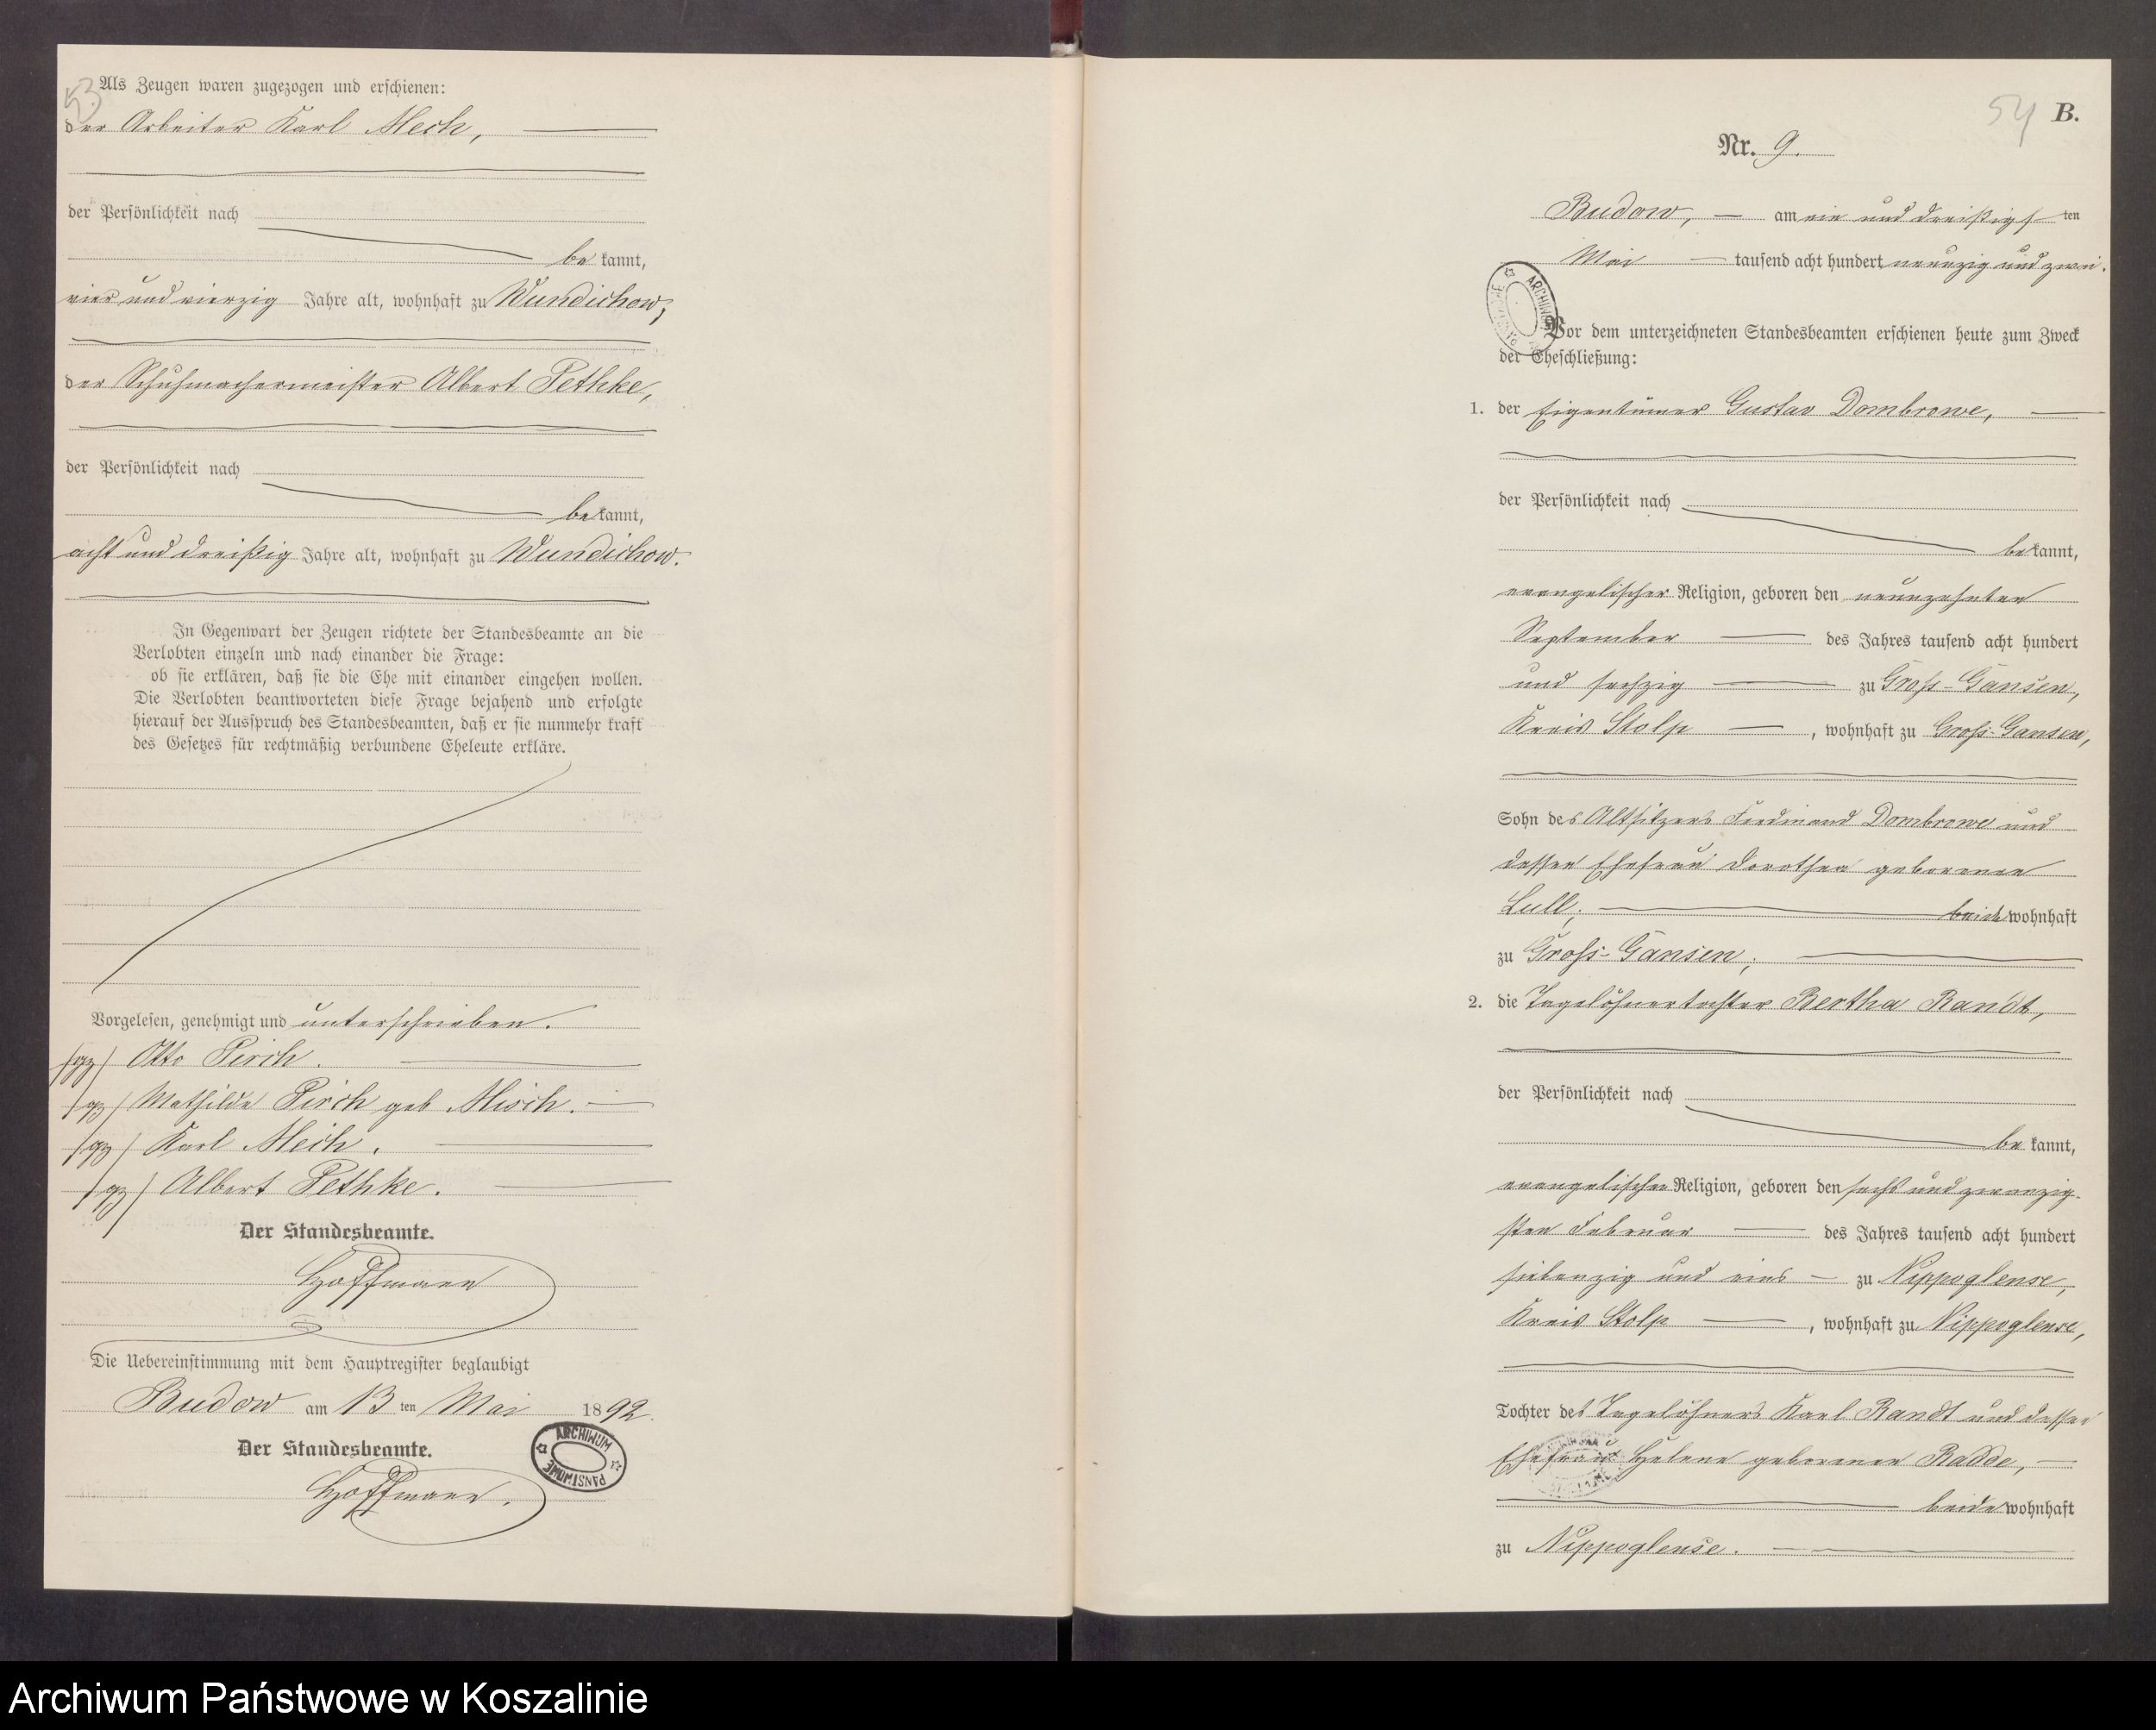 53
Als Zeugen waren zugezogen und erschienen:
der Arbeiter Karl Mech,
der Persönlichkeit nach
be kannt,
vier und vierzig Jahre alt, wohnhaft zu Wundichow,
der Schuhmachermeister Albert Pethke,
der Persönlichkeit nach
be kannt,
acht und dreißig Jahre alt, wohnhaft zu Wundichow.
In Gegenwart der Zeugen richtete der Standesbeamte an die
Verlobten einzeln und nach einander die Frage:
ob sie erklären, daß sie die Ehe mit einander eingehen wollen.
Die Verlobten beantworteten diese Frage bejahend und erfolgte
hierauf der Ausspruch des Standesbeamten, daß er sie nunmehr kraft
des Gesetzes für rechtmäßig verbundene Eheleute erkläre.
Vorgelesen, genehmigt und unterschrieben.
/gz/ Otto Pirch.
/gz/ Mathilde Pirch geb Misch.
/gz/ Karl Mech.
/gz/ Albert Pethke.
Der Standesbeamte.
Hoffmann
Die Uebereinstimmung mit dem Hauptregister beglaubigt
Budow am 13 ten Mai 1892.
Der Standesbeamte.
Hoffmann.
ARCHIWUM PAŃSTWOWE
54 B.
Nr. 9.
Budow, am ein und dreißigs ten
Mai tausend acht hundert neunzig und zwei.
Vor dem unterzeichneten Standesbeamten erschienen heute zum Zweck
der Eheschließung:
1. der Eigentümer Gustav Dombrowe,
der Persönlichkeit nach
be kannt,
evangelischer Religion, geboren den neunzehnten
September des Jahres tausend acht hundert
und sechzig zu Groß-Gansen,
Kreis Stolp, wohnhaft zu Groß-Gansen,
Sohn des Altsitzers Ferdinand Dombrowe und
dessen Ehefrau Dorothea geborenen
Lull, beide wohnhaft
zu Groß-Gansen;
2. die Tagelöhnertochter Bertha Randt,
der Persönlichkeit nach
be kannt,
evangelischer Religion, geboren den sechs und zwanzig-
sten Februar des Jahres tausend acht hundert
siebenzig und eins zu Nippoglense,
Kreis Stolp, wohnhaft zu Nippoglense,
Tochter des Tagelöhners Karl Randt und dessen
Ehefrau Helene geborenen Radde,
beide wohnhaft
zu Nippoglense.
Archiwum Państwowe w Koszalinie